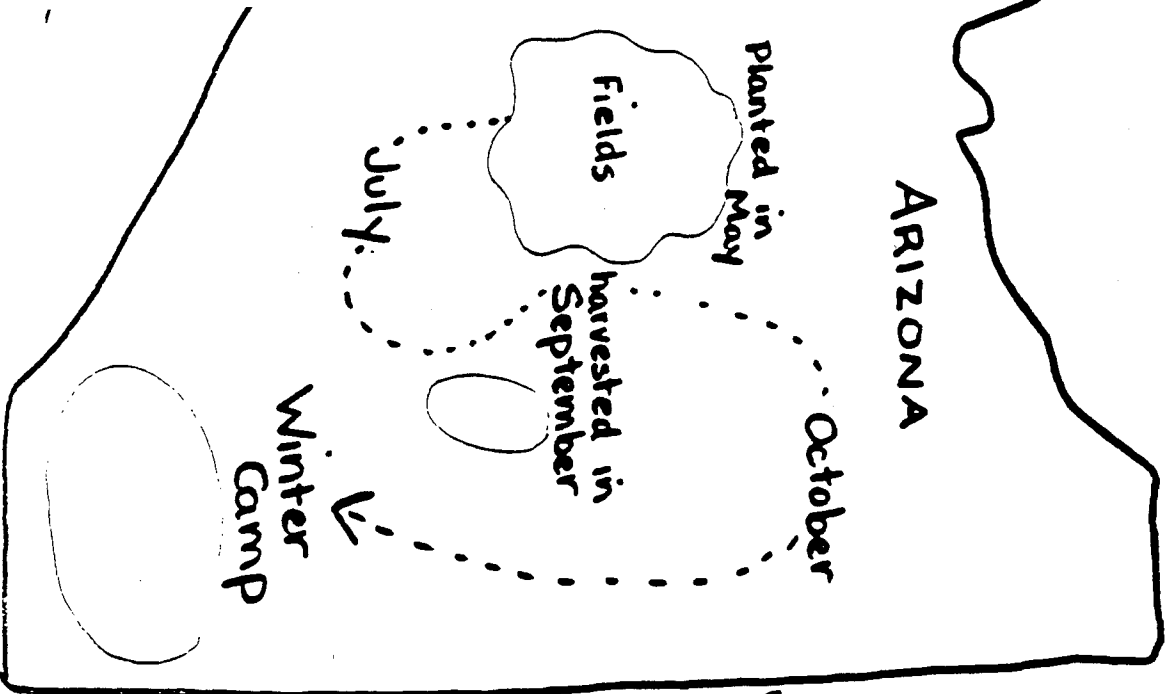 ARIZONA
Planted in
May
Fields
harvested in
September
July
October
Winter
Camp